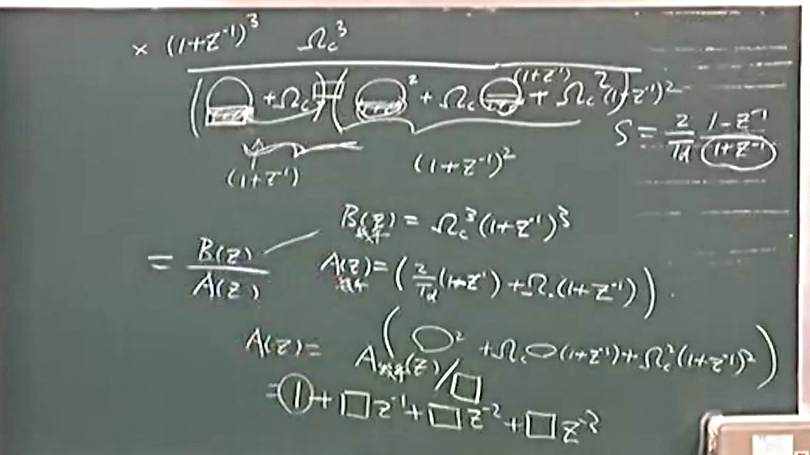 × (1+z⁻¹)³ Ωc³
( + Ωc ) ( ² + Ωc (1+z⁻¹) + Ωc² (1+z⁻¹)²
(1+z⁻¹) (1+z⁻¹)²
S = 2/Td 1-z⁻¹/1+z⁻¹
= B(z)/A(z)
B(z) = Ωc³(1+z⁻¹)³
A(z) = (2/Td(1-z⁻¹) + Ωc(1+z⁻¹)) .
( ○² + Ωc○(1+z⁻¹) + Ωc²(1+z⁻¹)² )
A(z) = A(z)/□
= 1 + □z⁻¹ + □z⁻² + □z⁻³